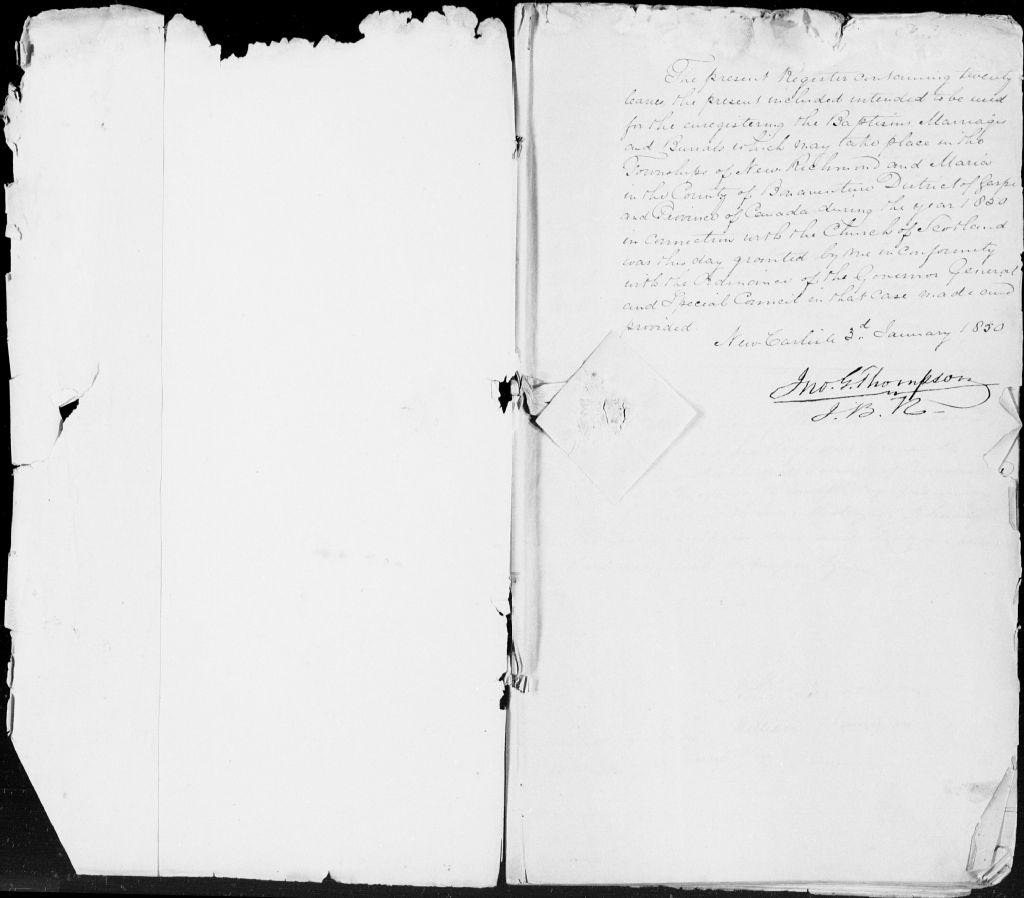 The present Register containing twenty
leaves the present included intended to be used
for the enregistering the Baptisms Marriages
and Burials which may take place in the
Townships of New Richmond and Maria
in the County of Bonaventure District of Gaspe
and Province of Canada during the year 1850
in connection with the Church of Scotland
was this day granted by me in conformity
with the Ordinance of the Governor General
and Special Council in that case made and
provided.
New Carlisle 3.d January 1850
Jno. G. Thompson
J. B. R